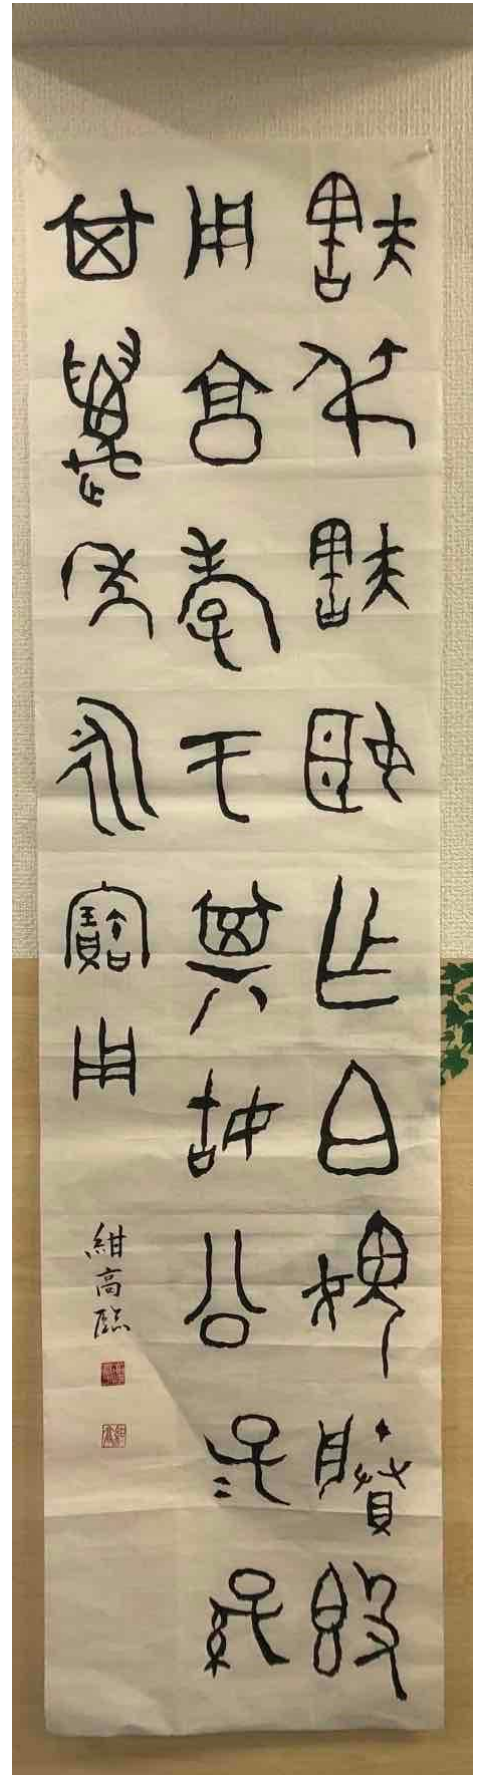 㝬叔㝬姬乍白媿賸𣪘
用享孝于其姑公子＝孫
其萬年永寶用
紺高臨